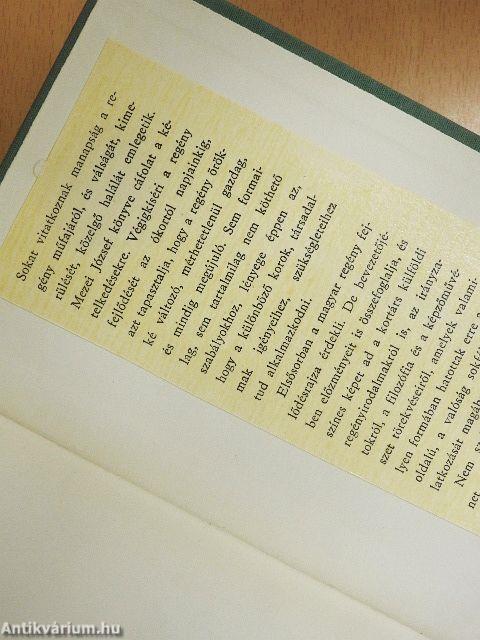 Sokat vitatkoznak manapság a re-
gény műfajáról, és válságát, kime-
rülését, közelgő halálát emlegetik.
Mezei József könyve cáfolat a ké-
telkedésekre. Végigkíséri a regény
fejlődését az ókortól napjainkig,
azt tapasztalja, hogy a regény örök-
ké változó, mérhetetlenül gazdag,
és mindig megújuló. Sem formai-
lag, sem tartalmilag nem köthető
szabályokhoz, lényege éppen az,
hogy a különböző korok, társadal-
mak igényeihez, szükségleteihez
tud alkalmazkodni.
Elsősorban a magyar regény fej-
lődésrajza érdekli. De bevezetőjé-
ben előzményeit is összefoglalja, és
színes képet ad a kortárs külföldi
regényirodalmakról is, az irányza-
tokról, a filozófia és a képzőművé-
szet törekvéseiről, amelyek valami-
lyen formában hatottak erre a
oldalú, a valóság sokf
latkozását magáb
Nem sz
net
Antikvárium.hu